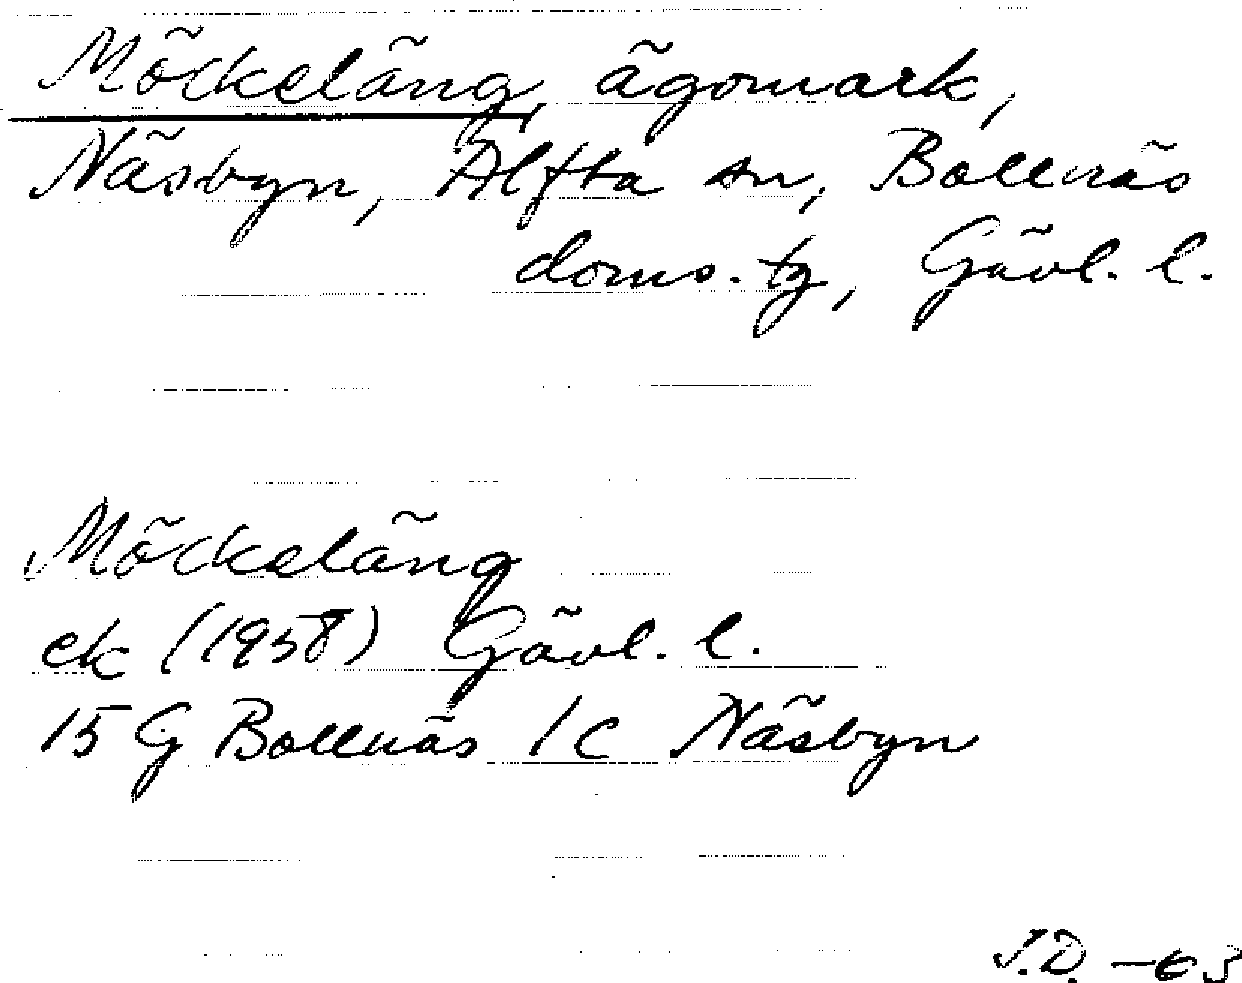 Möckeläng, ägomark,
Näsbyn, Alfta sn, Bollnäs
doms. tg, Gävl. l.
Möckeläng
ek (1958) Gävl. l.
15 G Bollnäs 1c Näsbyn
J.D. -63